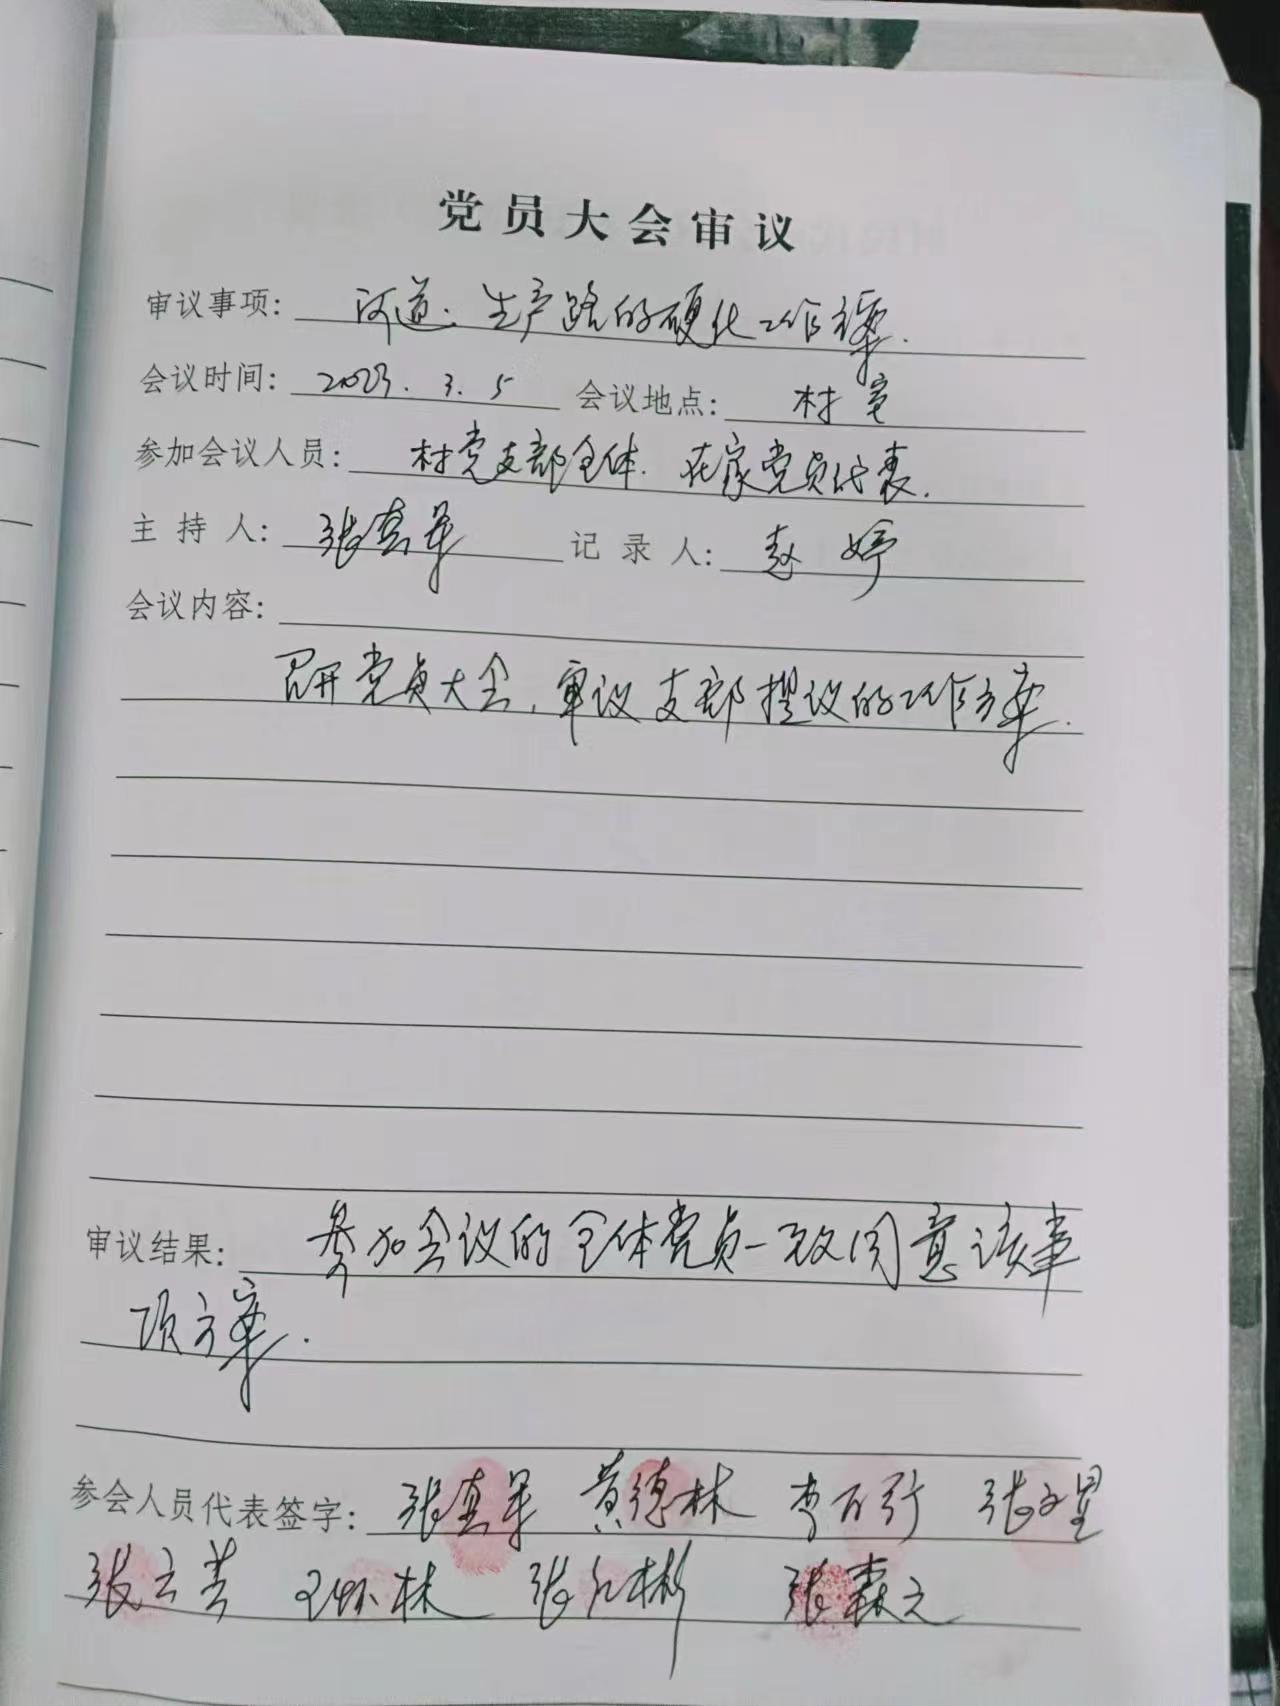 党员大会审议
审议事项: 河道、生产路的硬化工作方案.
会议时间: 2023.3.5 会议地点: 村室
参加会议人员: 村党支部全体、在家党员代表.
主持人: 张真军 记录人: 赵婷
会议内容:
召开党员大会,审议支部提议的工作方案.
审议结果: 参加会议的全体党员一致同意该事
项方案.
参会人员代表签字: 张真军 黄德林 李百行 张文星
张云芳 王怀林 张红彬 张森元